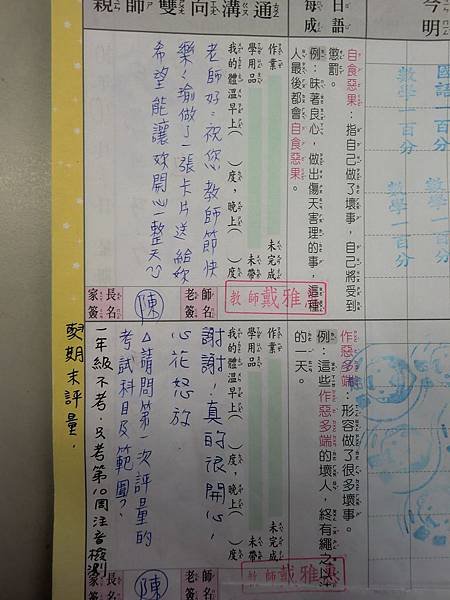 今明
日語
每成
親師雙向溝通
國語一百分
數學一百分
數學一百分
數學一百分
自食惡果：指自己做了壞事，自己將受到
懲罰。
例：昧著良心，做出傷天害理的事，這種
人最後都會自食惡果。
作業 未完成
學用品 未帶
我的體溫早上( )度，晚上( )度
老師好：祝您教師節快
樂！瑜做了一張卡片送給你
希望能讓妳開心一整天
教師戴雅
老師簽名
家長簽名
陳
作惡多端：形容做了很多壞事。
例：這些作惡多端的壞人，終有繩之以法
的一天。
作業 未完成
學用品 未帶
我的體溫早上( )度，晚上( )度
謝謝！真的很開心，
心花怒放
△請問第一次評量的
考試科目及範圍？
一年級不考，只考第10周注音檢測
期末評量。
教師戴雅
老師簽名
家長簽名
陳